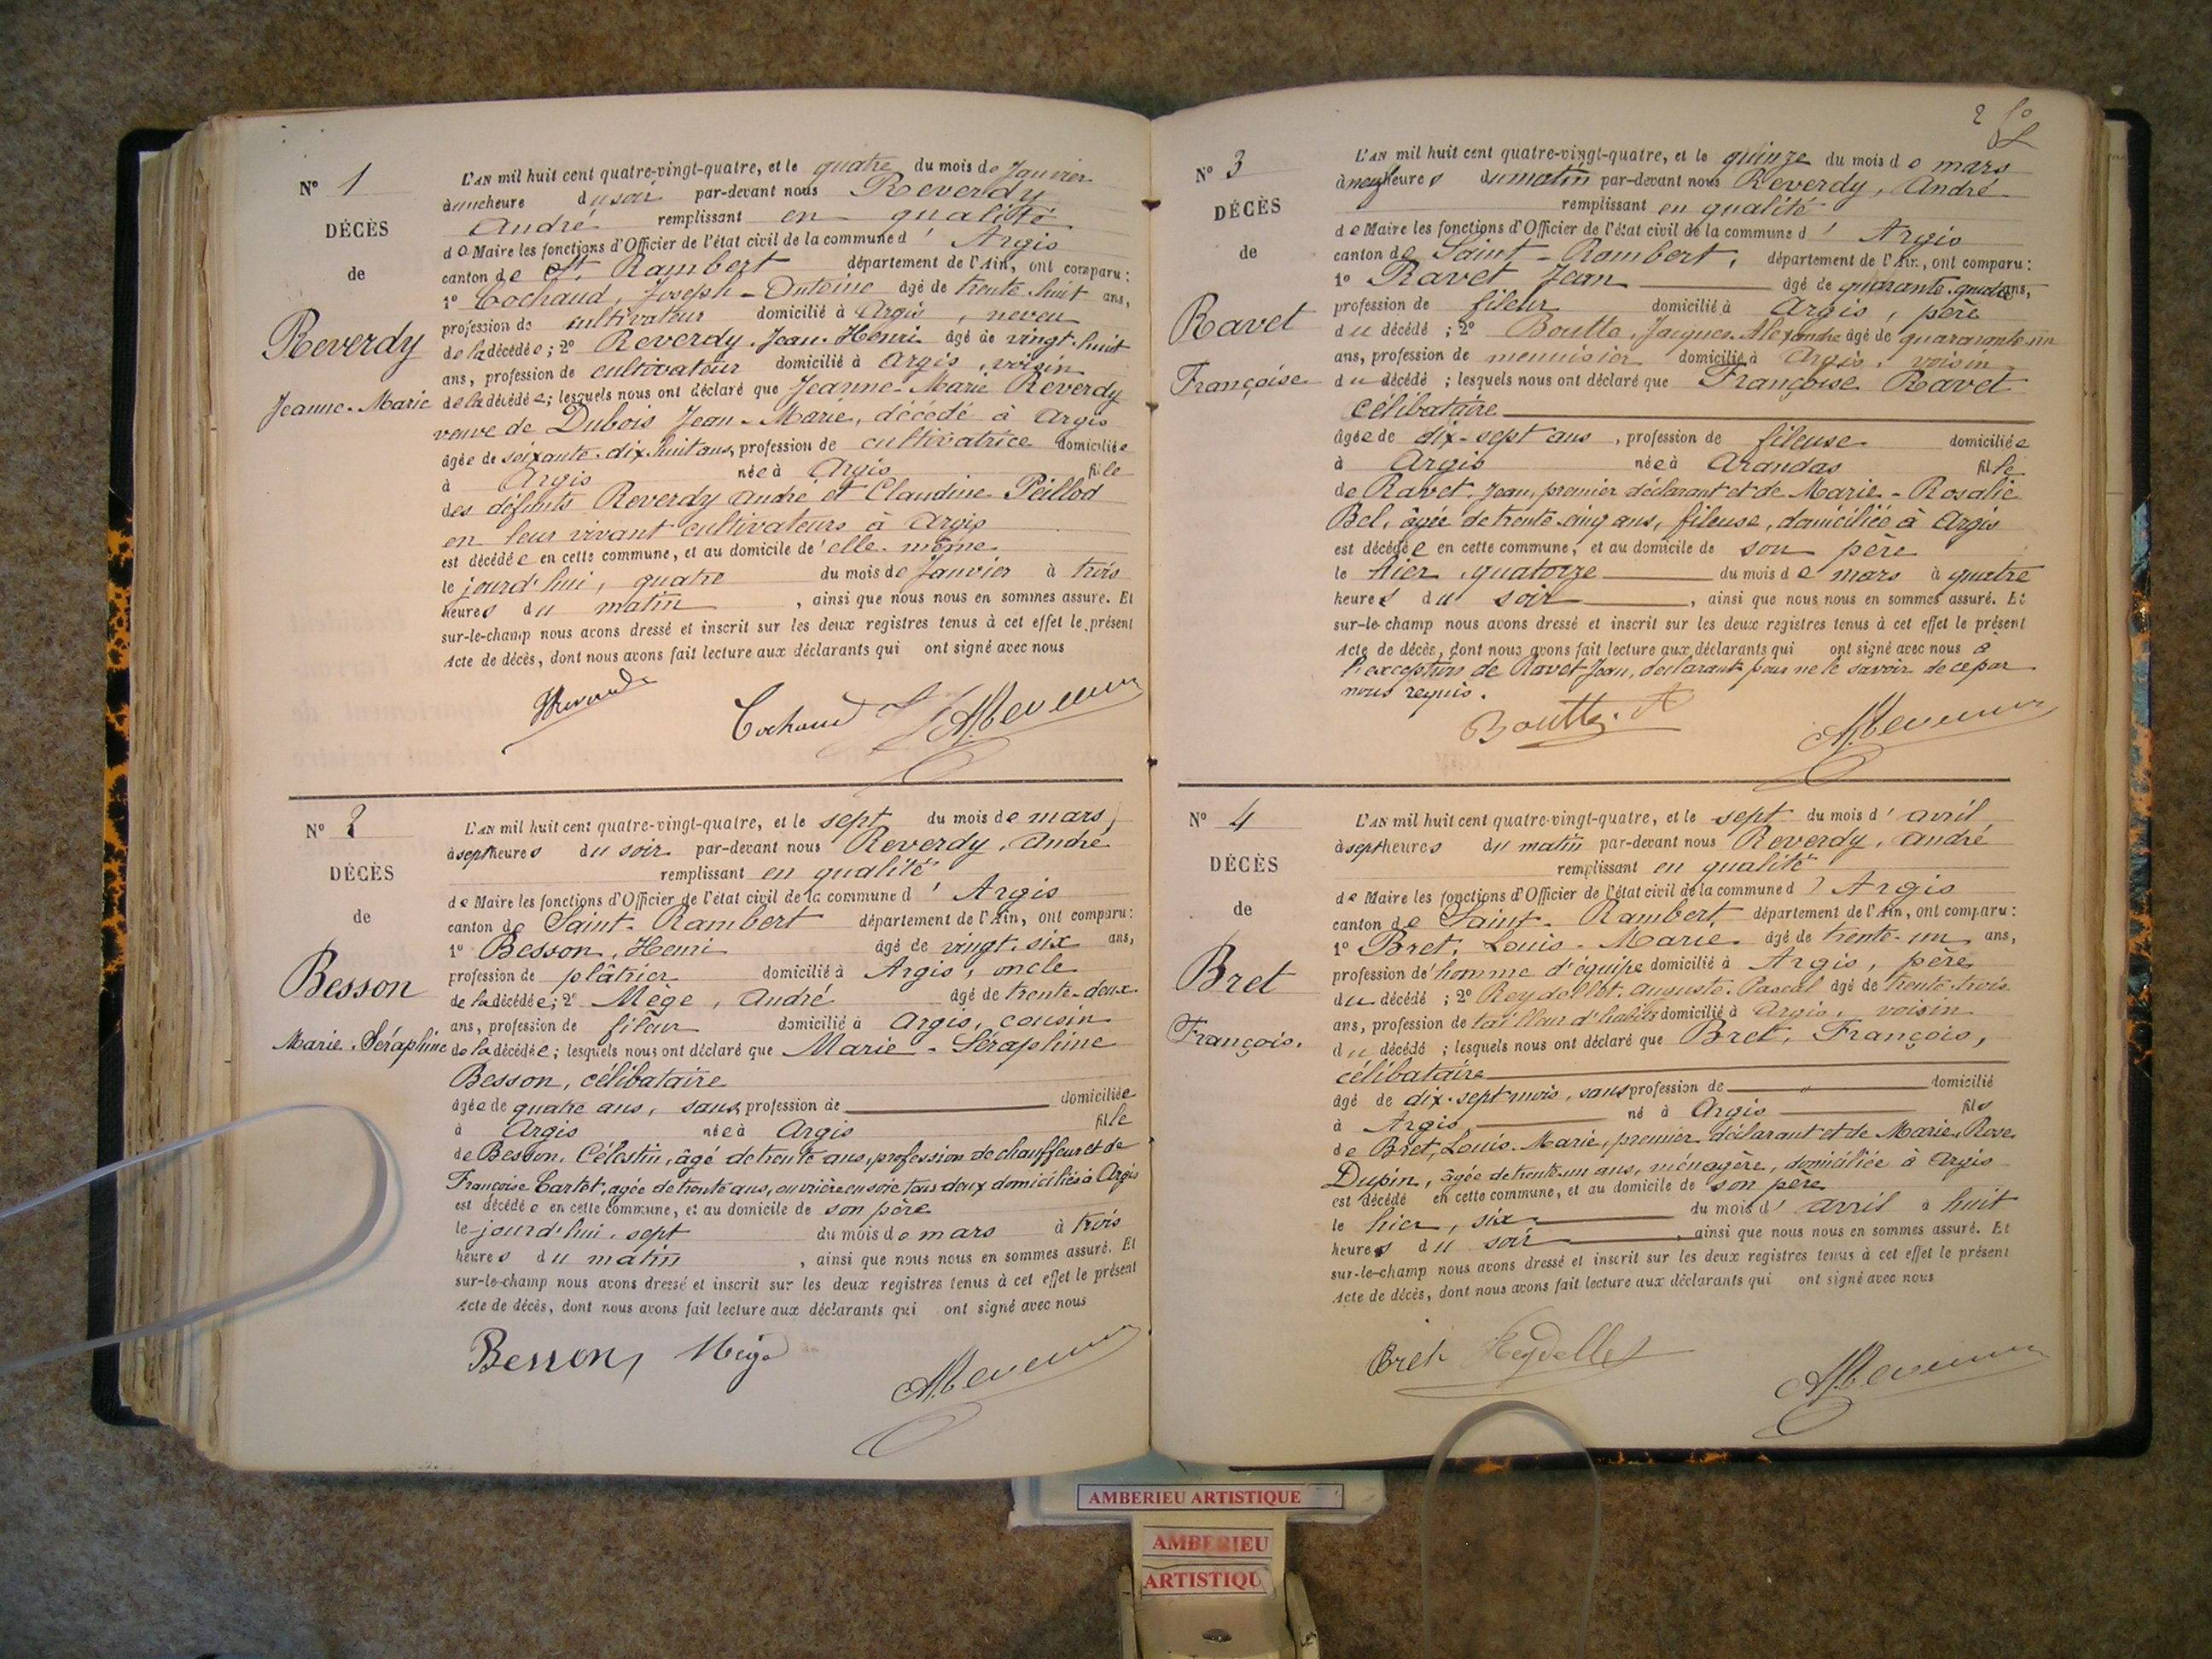 N° 1
DÉCÈS
de
Reverdy
Jeanne-Marie
L'AN mil huit cent quatre-vingt-quatre, et le quatre du mois de Janvier
à une heure du soir par-devant nous Reverdy
André remplissant en qualité
de Maire les fonctions d'Officier de l'état civil de la commune d'Argis
canton de St Rambert département de l'Ain, ont comparu :
1° Cochaud, Joseph-Antoine âgé de trente-huit ans,
profession de cultivateur domicilié à Argis, neveu
de la décédée ; 2° Reverdy, Jean-Henri âgé de vingt-huit
ans, profession de cultivateur domicilié à Argis, voisin
de la décédée ; lesquels nous ont déclaré que Jeanne-Marie Reverdy
veuve de Dubois Jean-Marie, décédé à Argis
âgée de soixante-dix-huit ans, profession de cultivatrice domiciliée
à Argis née à Argis fille
des défunts Reverdy André et Claudine Peillod
en leur vivant cultivateurs à Argis
est décédée en cette commune, et au domicile de elle-même
le jourd'hui, quatre du mois de Janvier à trois
heures du matin, ainsi que nous nous en sommes assuré. Et
sur-le-champ nous avons dressé et inscrit sur les deux registres tenus à cet effet le présent
Acte de décès, dont nous avons fait lecture aux déclarants qui ont signé avec nous
Cochaud
N° 2
DÉCÈS
de
Besson
Marie-Séraphine
L'AN mil huit cent quatre-vingt-quatre, et le sept du mois de mars,
à sept heures du soir par-devant nous Reverdy, André
remplissant en qualité
de Maire les fonctions d'Officier de l'état civil de la commune d'Argis
canton de Saint-Rambert département de l'Ain, ont comparu :
1° Besson, Henri âgé de vingt-six ans,
profession de plâtrier domicilié à Argis, oncle
de la décédée ; 2° Mège, André âgé de trente-deux
ans, profession de fileur domicilié à Argis, cousin
de la décédée ; lesquels nous ont déclaré que Marie-Séraphine
Besson, célibataire
âgée de quatre ans, sans profession de domiciliée
à Argis née à Argis fille
de Besson, Célestin, âgé de trente ans, profession de chauffeur et de
Françoise Cartet, agée de trente ans, ouvrière en soie, tous deux domiciliés à Argis
est décédée en cette commune, et au domicile de son père
le jourd'hui, sept du mois de mars à trois
heures du matin, ainsi que nous nous en sommes assuré. Et
sur-le-champ nous avons dressé et inscrit sur les deux registres tenus à cet effet le présent
Acte de décès, dont nous avons fait lecture aux déclarants qui ont signé avec nous
Besson, Mège
2
N° 3
DÉCÈS
de
Ravet
Françoise
L'AN mil huit cent quatre-vingt-quatre, et le quinze du mois de mars
à neuf heures du matin par-devant nous Reverdy, André
remplissant en qualité
de Maire les fonctions d'Officier de l'état civil de la commune d'Argis
canton de Saint-Rambert, département de l'Ain, ont comparu :
1° Ravet Jean âgé de quarante-quatre ans,
profession de fileur domicilié à Argis, père
du décédé ; 2° Boutte, Jacques-Alexandre âgé de quaranante-un
ans, profession de menuisier domicilié à Argis, voisin
du décédé ; lesquels nous ont déclaré que Françoise Ravet
célibataire
âgée de dix-sept ans, profession de fileuse domiciliée
à Argis née à Arandas fille
de Ravet, Jean, premier déclarant et de Marie-Rosalie
Bel, âgée de trente-cinq ans, fileuse, domiciliée à Argis
est décédée en cette commune, et au domicile de son père
le hier, quatorze du mois de mars à quatre
heures du soir, ainsi que nous nous en sommes assuré. Et
sur-le-champ nous avons dressé et inscrit sur les deux registres tenus à cet effet le présent
Acte de décès, dont nous avons fait lecture aux déclarants qui ont signé avec nous à
l'exception de Ravet Jean, déclarant pour ne le savoir de ce par
nous requis.
Boutte. A
N° 4
DÉCÈS
de
Bret
François.
L'AN mil huit cent quatre-vingt-quatre, et le sept du mois d'avril
à sept heures du matin par-devant nous Reverdy, André
remplissant en qualité
de Maire les fonctions d'Officier de l'état civil de la commune d'Argis
canton de Saint-Rambert département de l'Ain, ont comparu :
1° Bret, Louis-Marie âgé de trente-un ans,
profession d'homme d'équipe domicilié à Argis, père
du décédé ; 2° Reydellet, Auguste-Pascal âgé de trente-trois
ans, profession de tailleur d'habits domicilié à Argis, voisin
du décédé ; lesquels nous ont déclaré que Bret, François,
célibataire
âgé de dix-sept mois, sans profession de domicilié
à Argis, né à Argis fils
de Bret, Louis-Marie, premier déclarant et de Marie-Rose
Dupin, âgée de trente-un ans, ménagère, domiciliée à Argis
est décédé en cette commune, et au domicile de son père
le hier, six du mois d'avril à huit
heures du soir, ainsi que nous nous en sommes assuré. Et
sur-le-champ nous avons dressé et inscrit sur les deux registres tenus à cet effet le présent
Acte de décès, dont nous avons fait lecture aux déclarants qui ont signé avec nous
Bret Reydellet
AMBERIEU ARTISTIQUE
AMBERIEU
ARTISTIQU